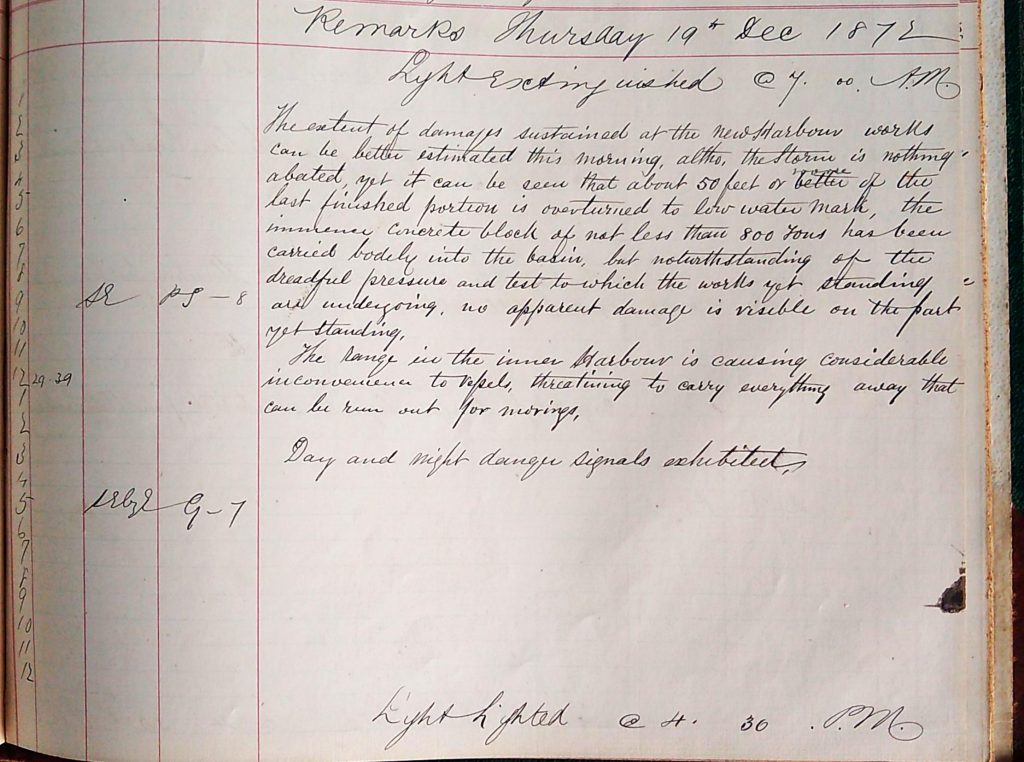 Remarks Thursday 19th Dec 1872
Light Extinguished @ 7. 00. A.M.
The extent of damages sustained at the new Harbour works
can be better estimated this morning, altho, the Storm is nothing
abated, yet it can be seen that about 50 feet or more better of the
last finished portion is overturned to low water mark, the
immence concrete block of not less than 800 Tons has been
carried bodely into the basin, but noturthstanding of the
dreadful pressure and test to which the works yet standing
are undergoing, no apparent damage is visible on the part
yet standing,
The Range in the inner Harbour is causing considerable
inconvenience to Vessels, threatining to carry everything away that
can be run out for morings,
Day and night danger signals exhibited,
1
2
3
4
5
6
7
8
9 SE PS - 8
10
11
12 29.39
1
2
3
4
5 SEbyE G - 7
6
7
8
9
10
11
12
Light Lighted @ 4. 30 . P.M.